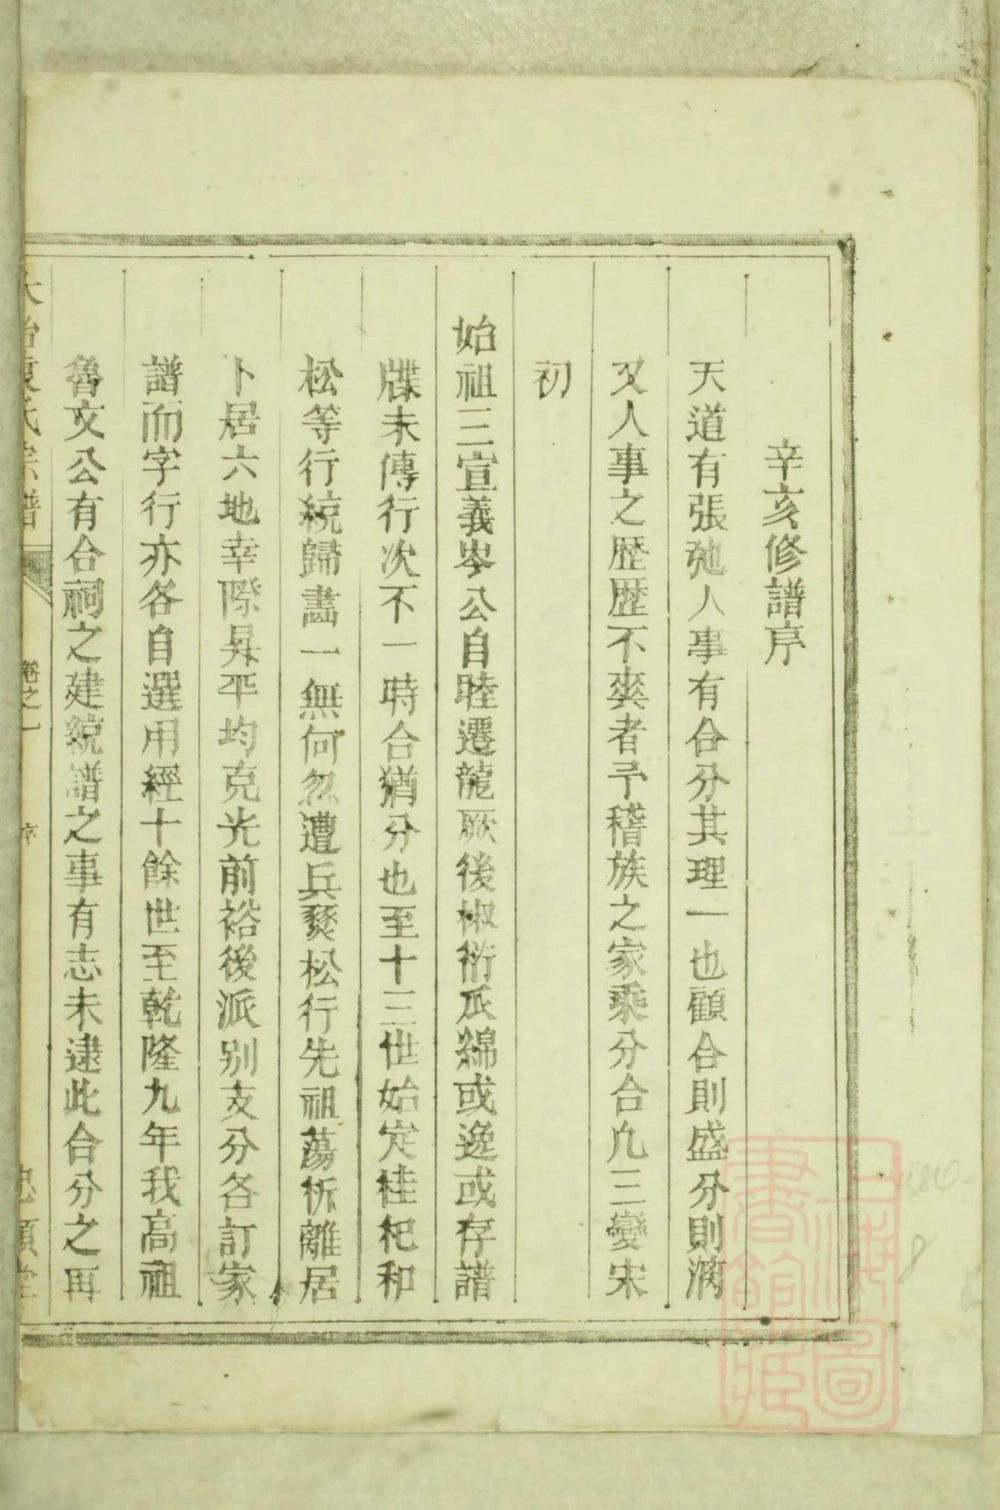 辛亥修譜序
天道有張弛人事有合分其理一也顧合則盛分則漓
又人事之歴歴不爽者予稽族之家乘分合凢三變宋
初
始祖三宣義岑公自睦遷龍厥後椒衍瓜綿或逸或存譜
牒未傳行次不一時合猶分也至十三世始定桂杞和
松等行統歸畫一無何忽遭兵燹松行先祖蕩析離居
卜居六地幸際昇平均克光前裕後派别支分各訂家
譜而字行亦各自選用經十餘世至乾隆九年我高祖
魯文公有合祠之建統譜之事有志未逮此合分之再
氏宗譜
卷之一
序
上海圖書館藏